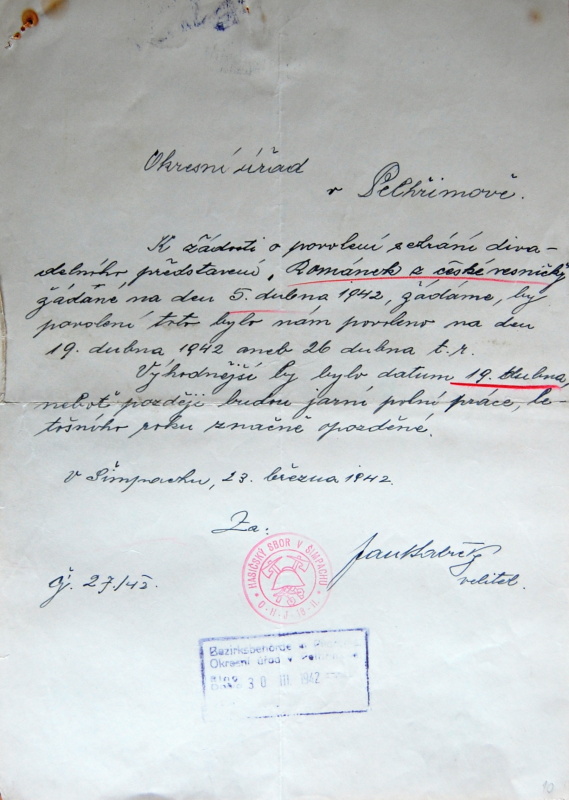 Okresní úřad
v Pelhřimově.
K žádosti o povolení sehrání diva-
delního představení „Románek z české vesničky
žádané na den 5. dubna 1942, žádáme, by
povolení toto bylo nám povoleno na den
19. dubna 1942 aneb 26 dubna t. r.
Výhodnější by bylo datum 19. dubna,
neboť později budou jarní polní práce, le-
tošního roku značně opožděné.
V Šimpachu, 23. března 1942.
Za:
HASIČSKÝ SBOR V ŠIMPACHU
Jan
velitel.
Čj. 27/42.
Bezirksbehörde in
Okresní úřad v
30 III 1942
10